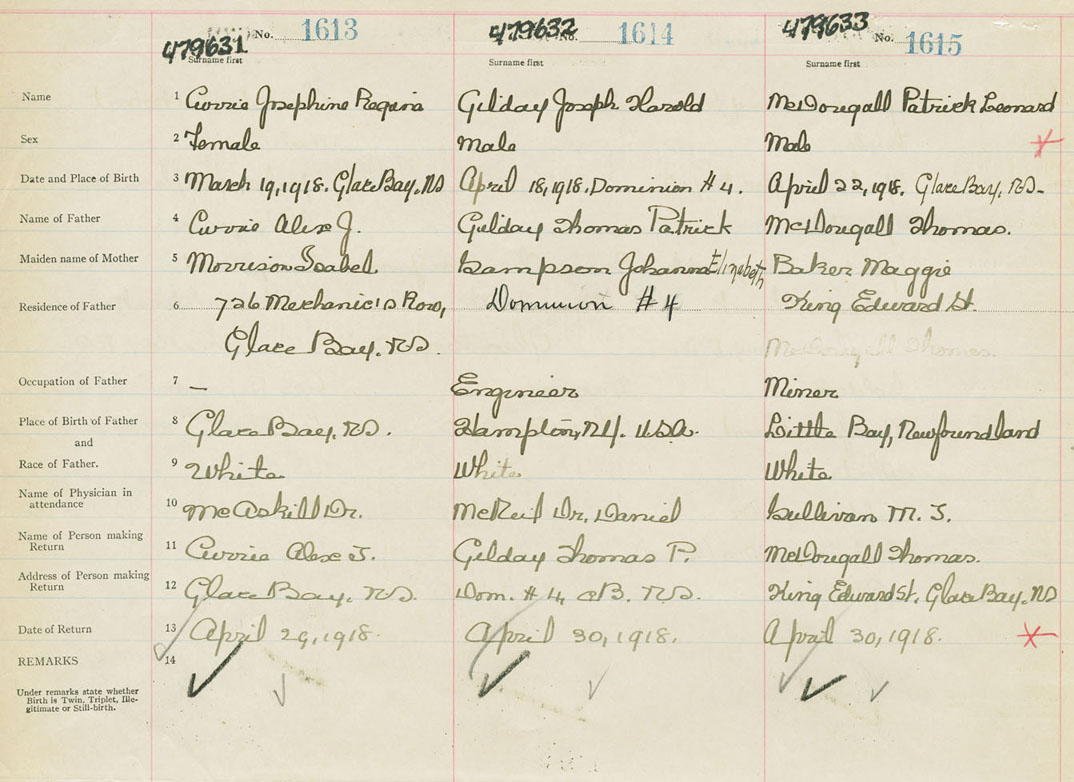 479631 No. 1613 479632 No. 1614 479633 No. 1615
Surname first Surname first Surname first
Name 1 Currie Josephine Regina Gilday Joseph Harold McDougall Patrick Leonard
Sex 2 Female Male Male
Date and Place of Birth 3 March 19, 1918. Glace Bay. NS April 18, 1918. Dominion #4. April 22, 1918. Glace Bay. NS.
Name of Father 4 Currie Alex J. Gilday Thomas Patrick McDougall Thomas.
Maiden name of Mother 5 Morrison Isabel. Sampson Johanna Elizabeth Baker Maggie
Residence of Father 6 726 Mechanic's Row, Dominion #4 King Edward St.
Glace Bay. N.S. McDougall Thomas.
Occupation of Father 7 — Engineer Miner
Place of Birth of Father 8 Glace Bay. N.S. Hampton, N.Y. U.S.A. Little Bay, Newfoundland
and
Race of Father. 9 White White White
Name of Physician in
attendance 10 McAskill Dr. McNeil Dr. Daniel Sullivan M. J.
Name of Person making
Return 11 Currie Alex J. Gilday Thomas P. McDougall Thomas.
Address of Person making
Return 12 Glace Bay. N.S. Dom. #4, C.B. N.S. King Edward St, Glace Bay. NS
Date of Return 13 April 29, 1918. April 30, 1918. April 30, 1918.
REMARKS 14
Under remarks state whether
Birth is Twin, Triplet, Ille-
gitimate or Still-birth.